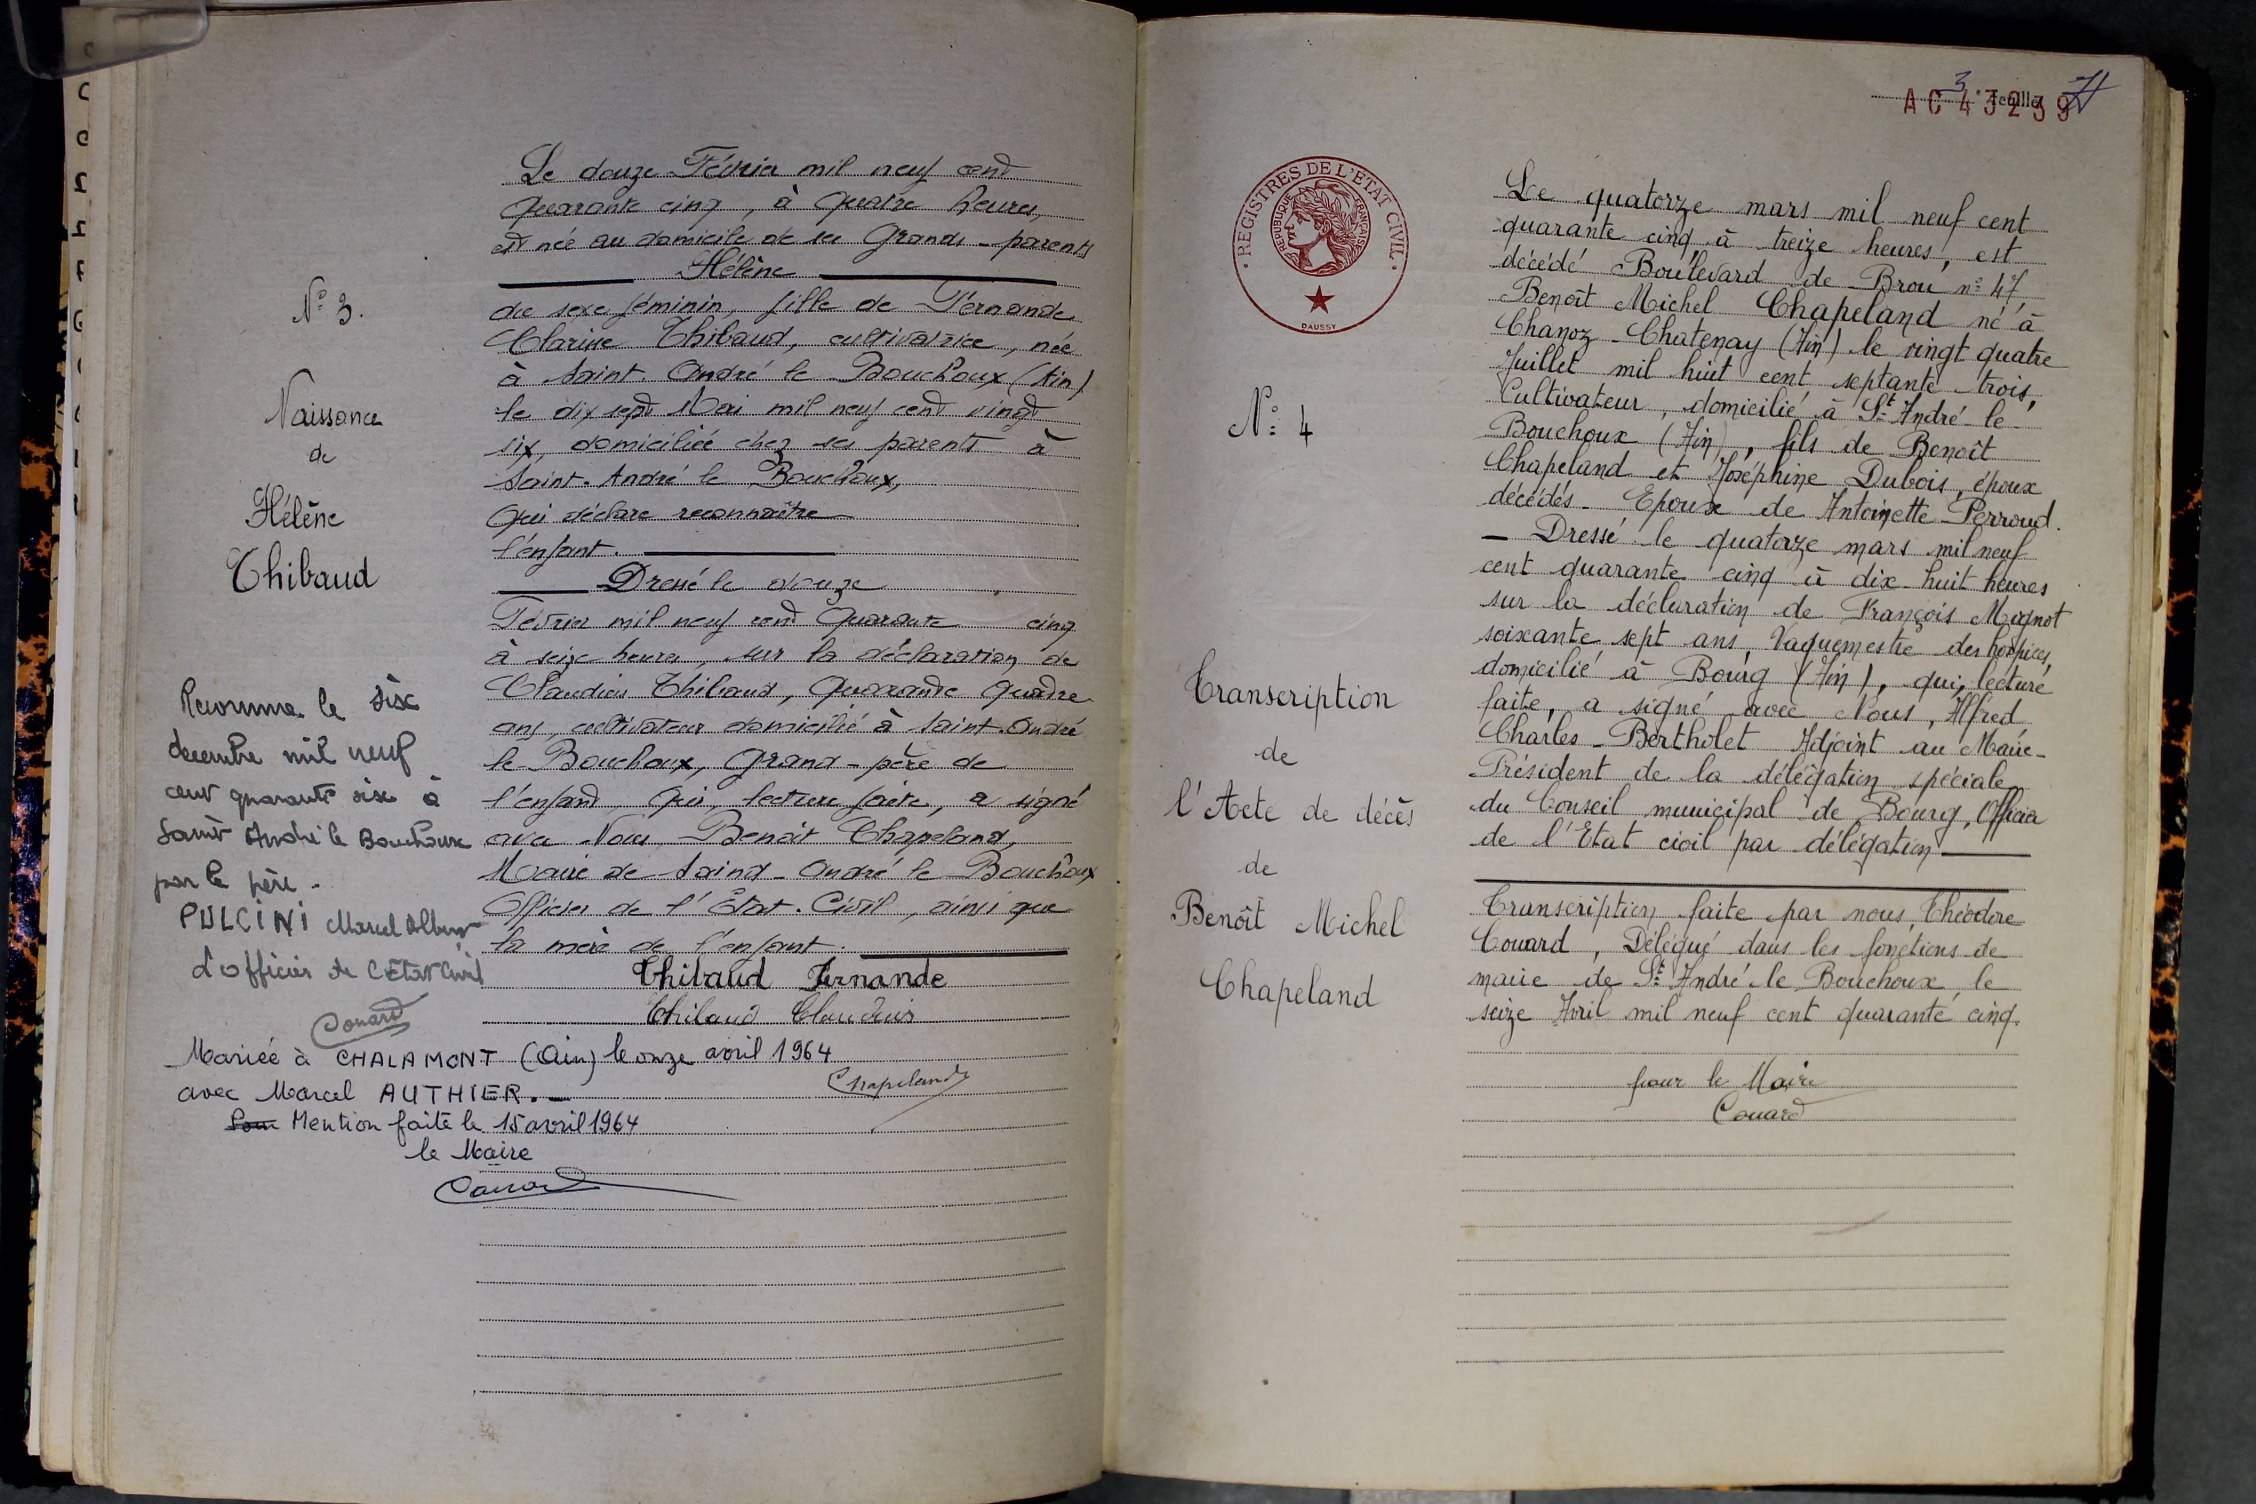 N° 3.
Naissance
de
Hélène
Thibaud
Le douze Février mil neuf cent
quarante cinq, à quatre heures,
est née au domicile de ses Grands-parents
Hélène
de sexe féminin, fille de Fernande
Clarine Thibaud, cultivatrice, née
à Saint. André le Bouchoux (Ain)
le dix sept Mai mil neuf cent vingt
six, domiciliée chez ses parents à
Saint. André le Bouchoux,
qui déclare reconnaître
l'enfant.
Dressé le douze
Février mil neuf cent quarante cinq
à seize heures, sur la déclaration de
Claudius Thibaud, quarante quatre
ans, cultivateur domicilié à Saint. André
le Bouchoux, Grand-père de
l'enfant, qui, lecture faite, a signé
avec Nous Benoît Chapeland,
Maire de Saint-André le Bouchoux
Officier de l'État. Civil, ainsi que
la mère de l'enfant.
Thibaud Fernande
Thibaud Claudius
Chapeland
Reconnue le six
decembre mil neuf
cent quarante six à
Saint André le Bouchoux
par le père.
PULCINI Marcel Albert
L'officier de l'Etat Civil
Couard
Mariée à CHALAMONT (Ain) le onze avril 1964
avec Marcel AUTHIER.-
Pour Mention faite le 15 avril 1964
le Maire
Couard
3 feuille
AC 43239
REGISTRES DE L'ETAT CIVIL
REPUBLIQUE FRANÇAISE
DAUSSY
N° 4
Transcription
de
l'Acte de décès
de
Benoît Michel
Chapeland
Le quatorze mars mil neuf cent
quarante cinq, à treize heures, est
décédé Boulevard de Brou n° 47,
Benoît Michel Chapeland né à
Chanoz-Chatenay (Ain) le vingt quatre
Juillet mil huit cent septante trois,
Cultivateur, domicilié à St André-le-
Bouchoux (Ain), fils de Benoît
Chapeland et Joséphine Dubois, époux
décédés. Epoux de Antoinette Perroud.
- Dressé le quatorze mars mil neuf
cent quarante cinq à dix-huit heures
sur la déclaration de François Mignot
soixante sept ans, Vaguemestre des hospices,
domicilié à Bourg (Ain), qui, lecture
faite, a signé avec Nous, Alfred
Charles-Bertholet Adjoint au Maire-
Président de la délégation spéciale
du Conseil municipal de Bourg, Officier
de l'Etat civil par délégation
Transcription faite par nous, Théodore
Couard, Délégué dans les fonctions de
maire de St André-le-Bouchoux, le
seize Avril mil neuf cent quarante cinq.
pour le Maire
Couard